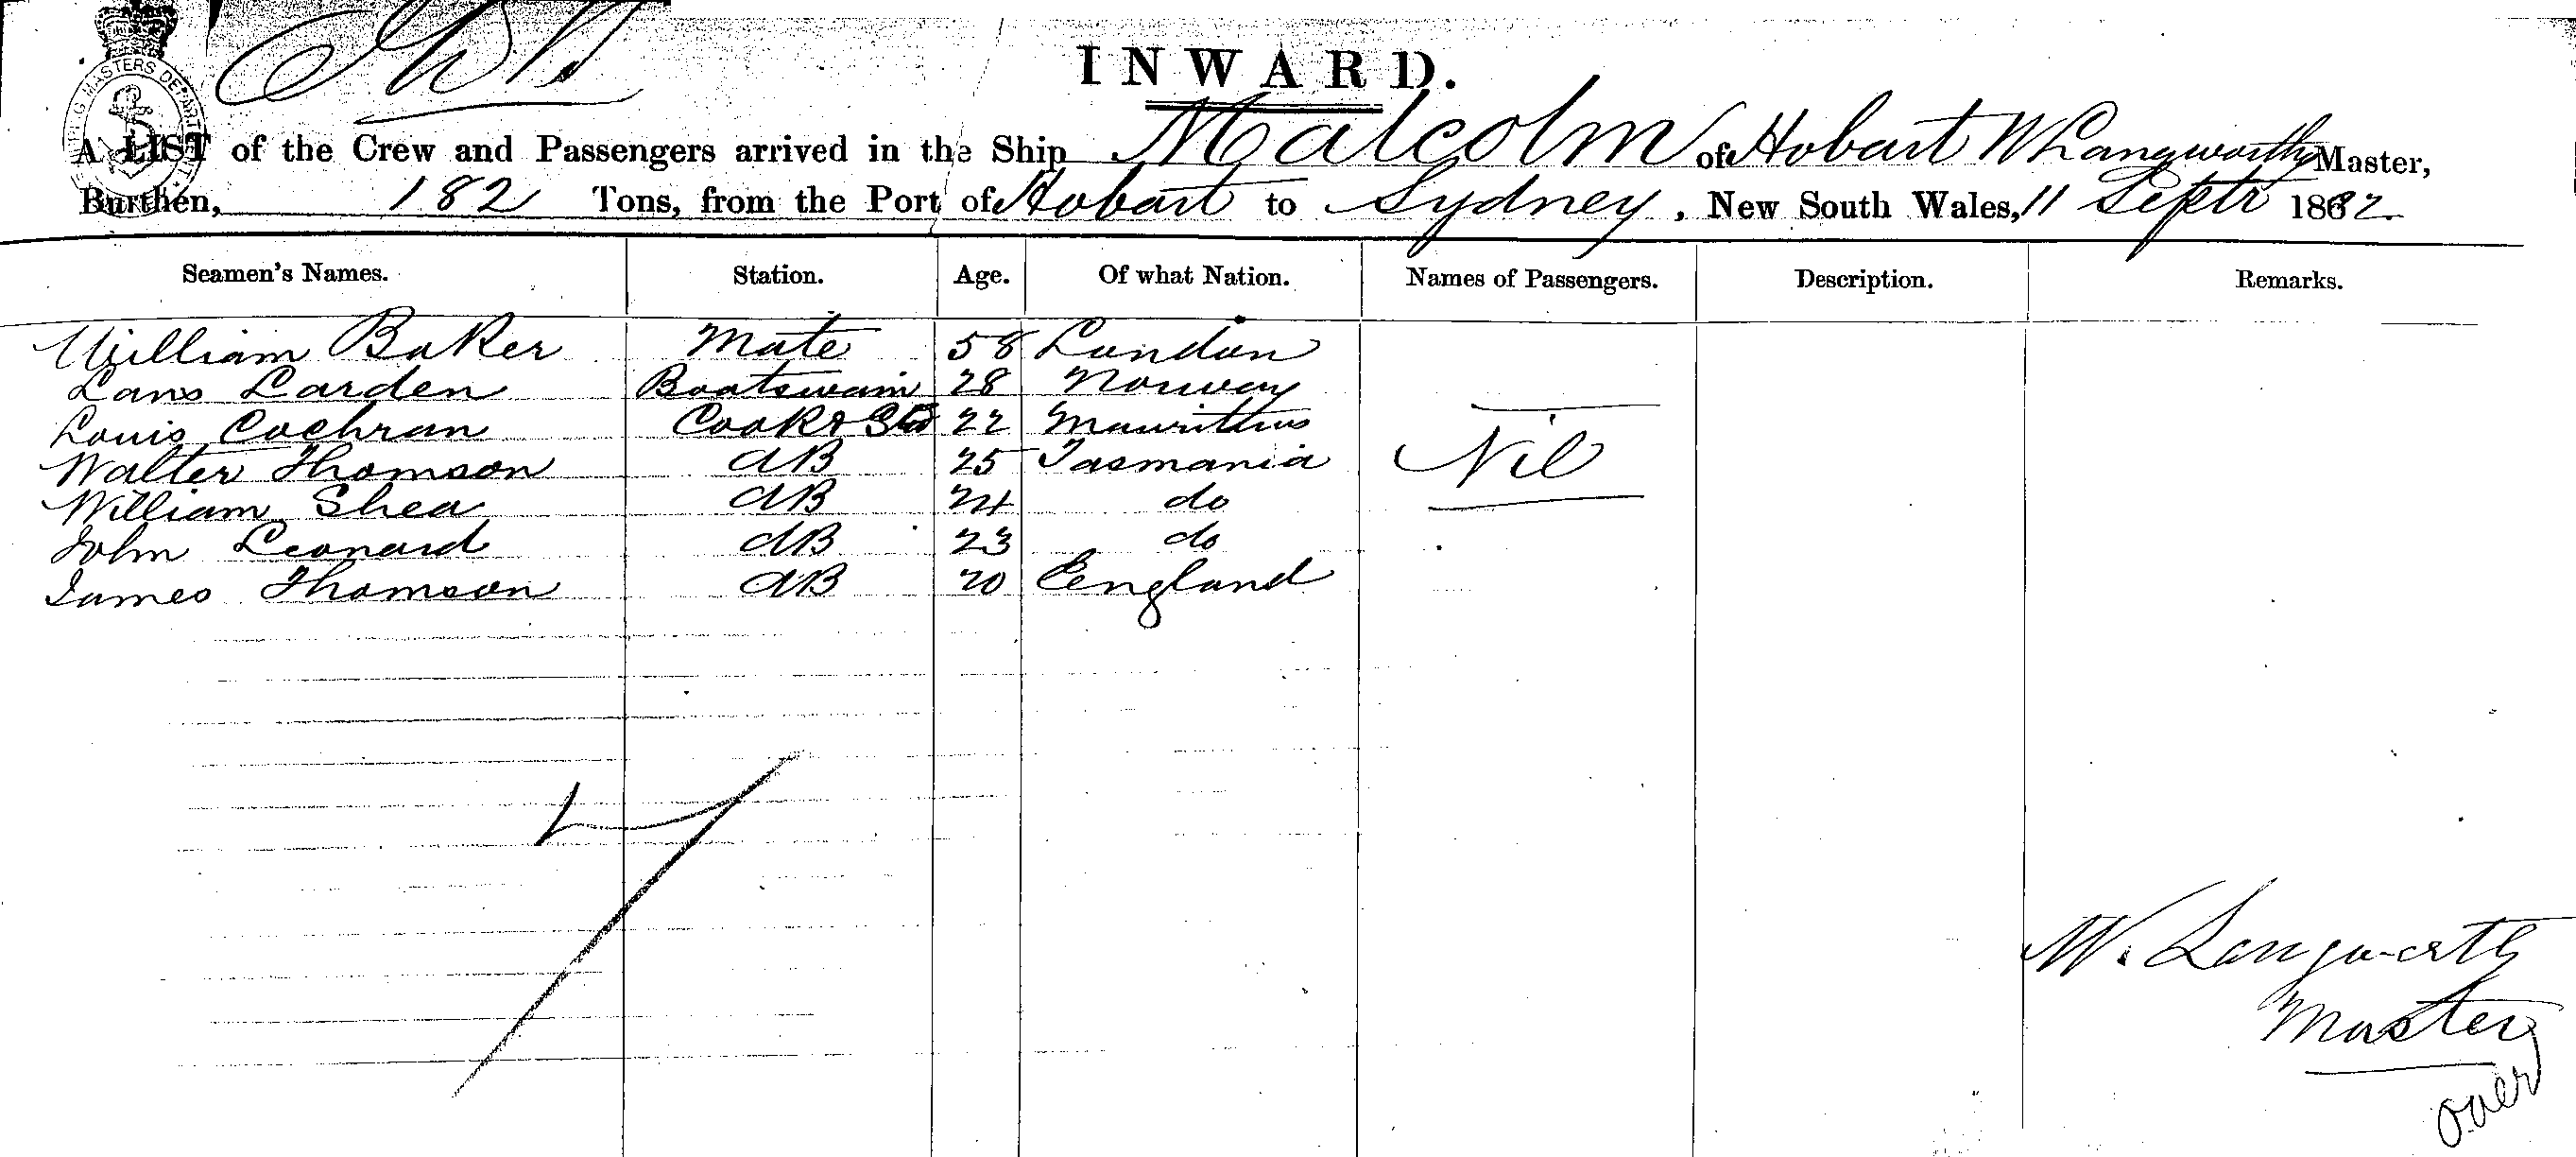 INWARD.
A LIST of the Crew and Passengers arrived in the Ship Malcolm of Hobart W Langworthy Master,
Burthen, 182 Tons, from the Port of Hobart to Sydney, New South Wales, 11 Septr 1882.
Seamen's Names. Station. Age. Of what Nation. Names of Passengers. Description. Remarks.
William Baker Mate 58 London
Lans Larden Boatswain 28 Norway
Louis Cochran Cook & Std 22 Mauritius
Walter Thomson AB 25 Tasmania Nil
William Shea AB 24 do
John Leonard AB 23 do
James Thomson AB 20 Eengland
W. Langworthy
Master
over